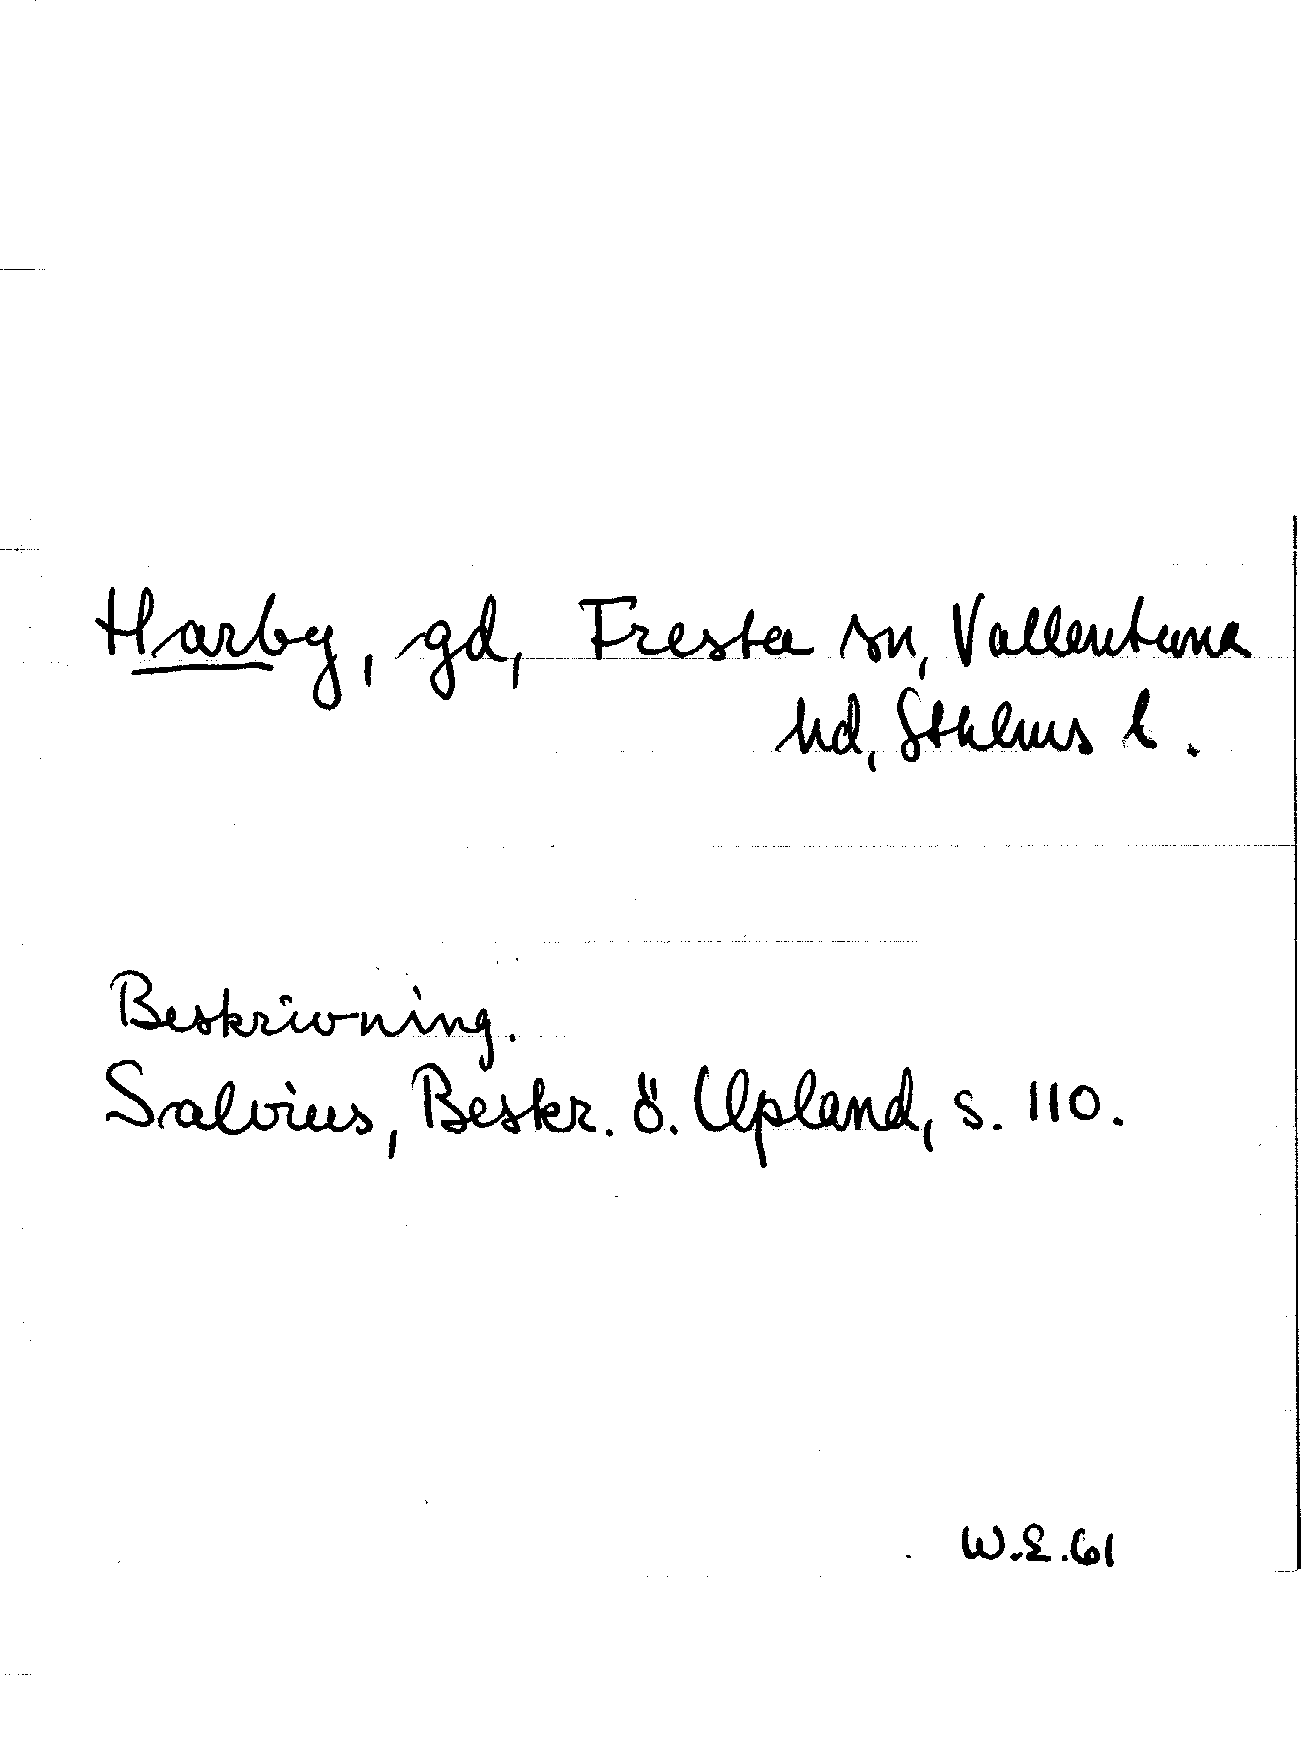 Harby, gd, Fresta sn, Vallentuna
hd, Sthlms l.
Beskrivning.
Salvius, Beskr. ö. Upland, s. 110.
W.E.61